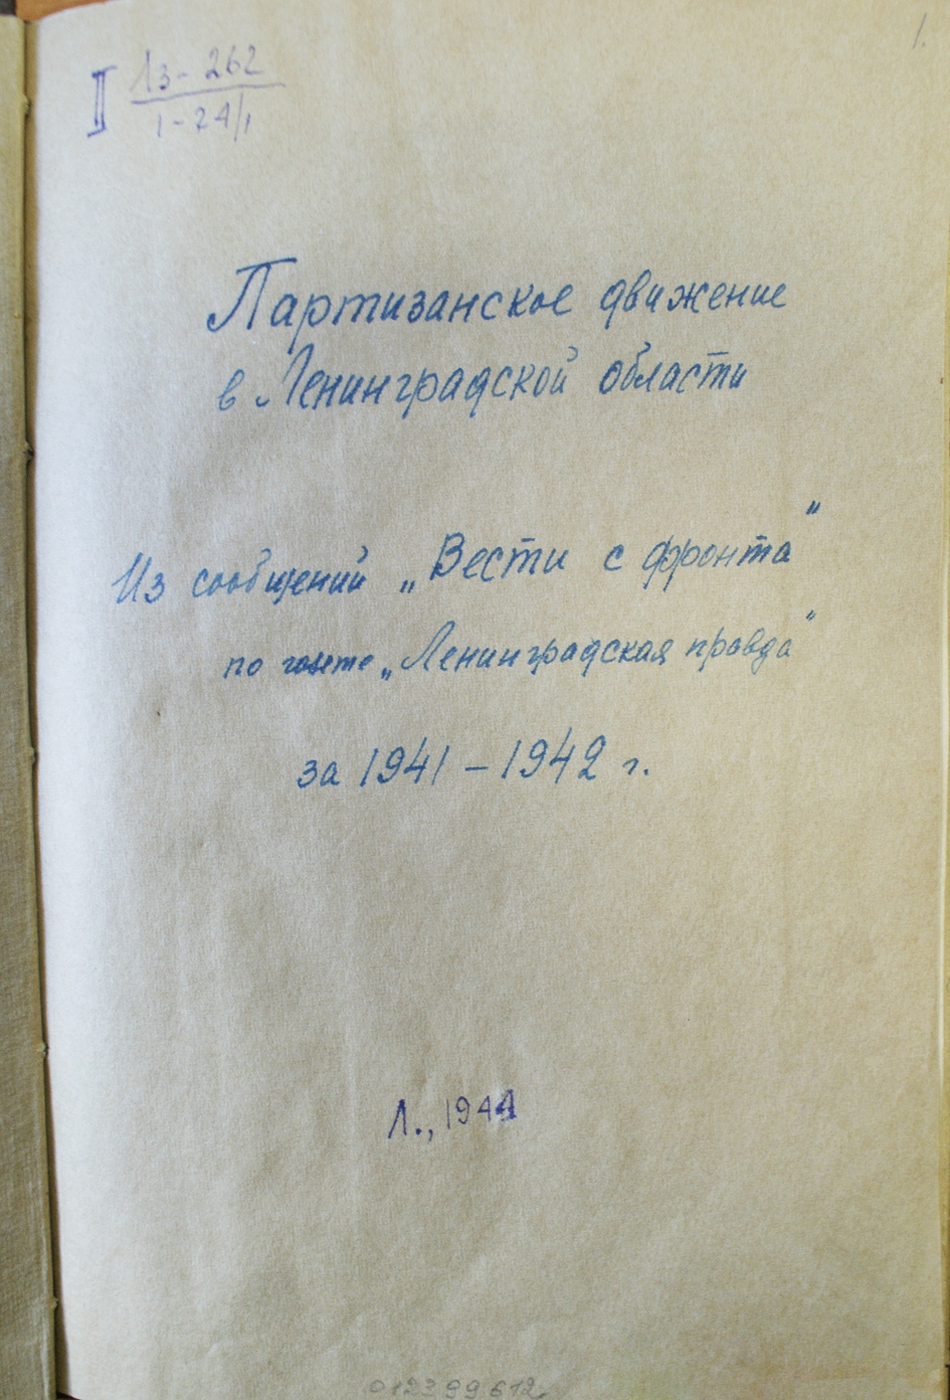 1.
II Лз - 262
1-24/1
Партизанское движение
в Ленинградской области
Из сообщений „Вести с фронта"
по газете „Ленинградская правда"
за 1941 - 1942 г.
Л., 1944
012399612